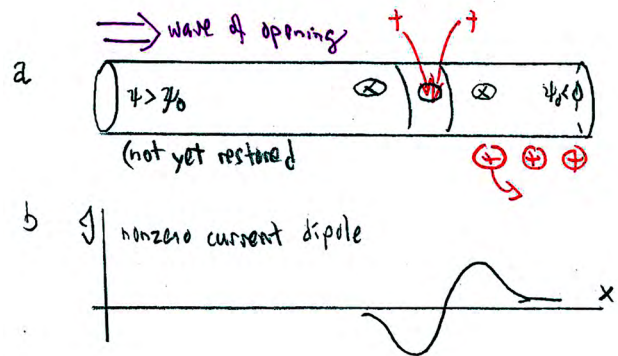 ⇒ wave of opening
+ +
a
ψ > ψ₀
(not yet restored
+ + +
b
J nonzero current dipole
x